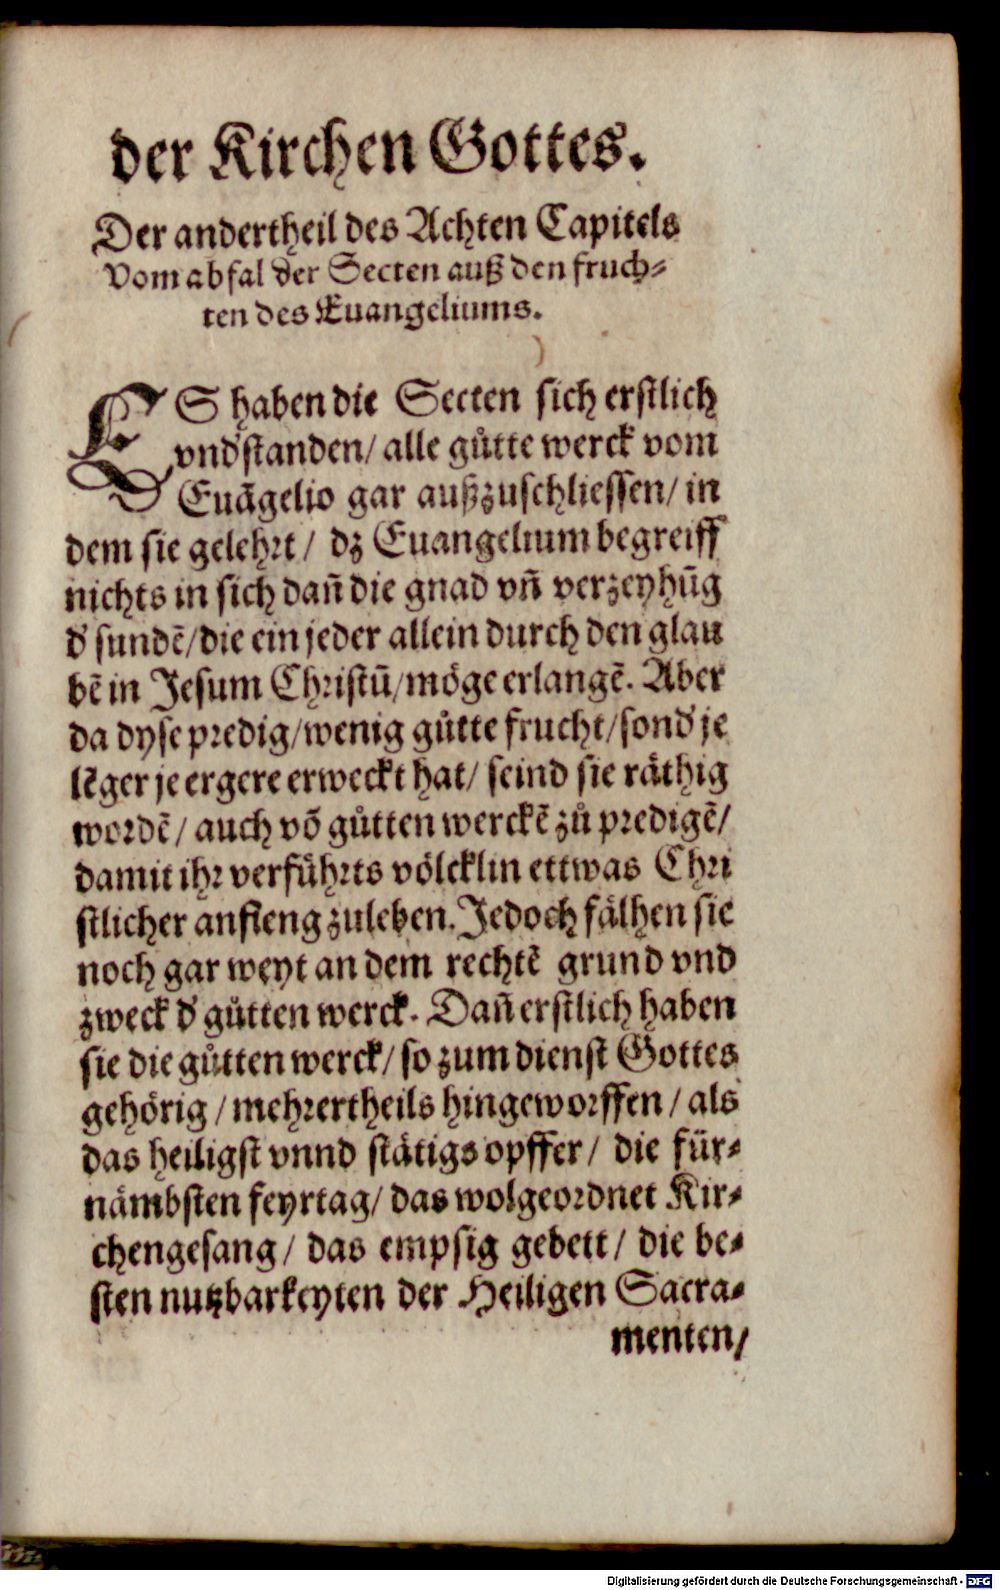 der Kirchen Gottes.
Der andertheil des Achten Capitels
Vom abfal der Secten auß den fruch⸗
ten des Euangeliums.
ES haben die Secten sich erstlich
vnd'standen/ alle gůtte werck vom
Euãgelio gar außzuschliessen/ in
dem sie gelehrt / dz Euangelium begreiff
nichts in sich dañ die gnad vñ verzeyhũg
d' sundẽ/die ein jeder allein durch den glau
bẽ in Jesum Christũ/möge erlangẽ. Aber
da dyse predig/wenig gůtte frucht/sond' je
lẽger je ergere erweckt hat/ seind sie räthig
wordẽ/ auch võ gůtten werckẽ zů predigẽ/
damit ihr verführts völcklin ettwas Chri
stlicher anfieng zuleben. Jedoch fälhen sie
noch gar weyt an dem rechtẽ grund vnd
zweck d' gůtten werck. Dañ erstlich haben
sie die gůtten werck/ so zum dienst Gottes
gehörig / mehrertheils hingeworffen / als
das heiligst vnnd stätigs opffer/ die für⸗
nämbsten feyrtag/ das wolgeordnet Kir⸗
chengesang / das empsig gebett/ die be⸗
sten nutzbarkeyten der Heiligen Sacra⸗
menten/
Digitalisierung gefördert durch die Deutsche Forschungsgemeinschaft - DFG